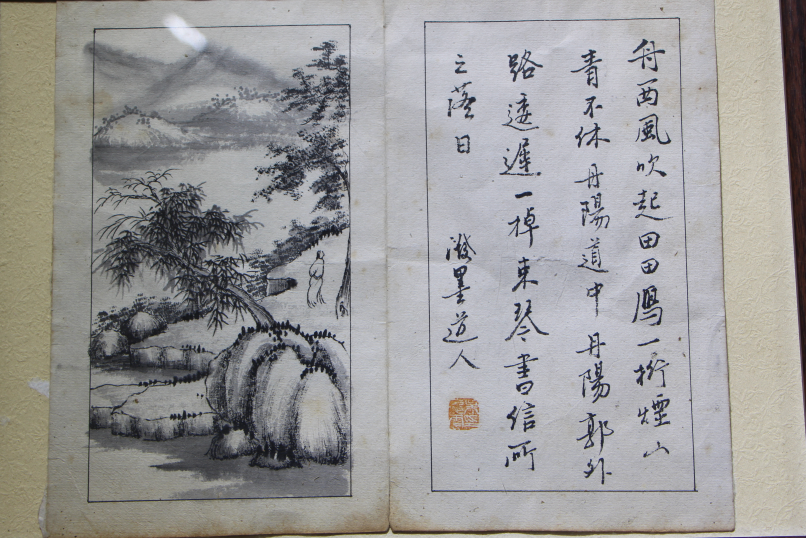 舟西風吹起田田鴈一行煙山
青不休丹陽道中丹陽郭外
路逶遲一棹束琴書信所
之薩日
潑墨道人